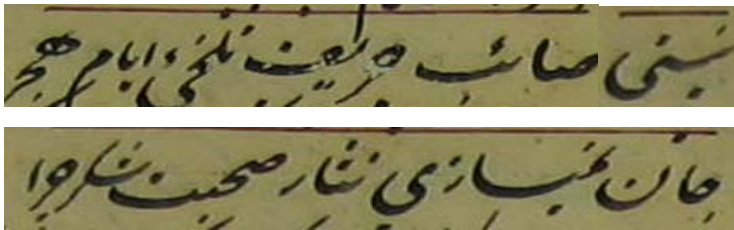 نیستی صائب حریف تلخی ایام هجر
جان نمیسازی نثار صحبت شکر چرا